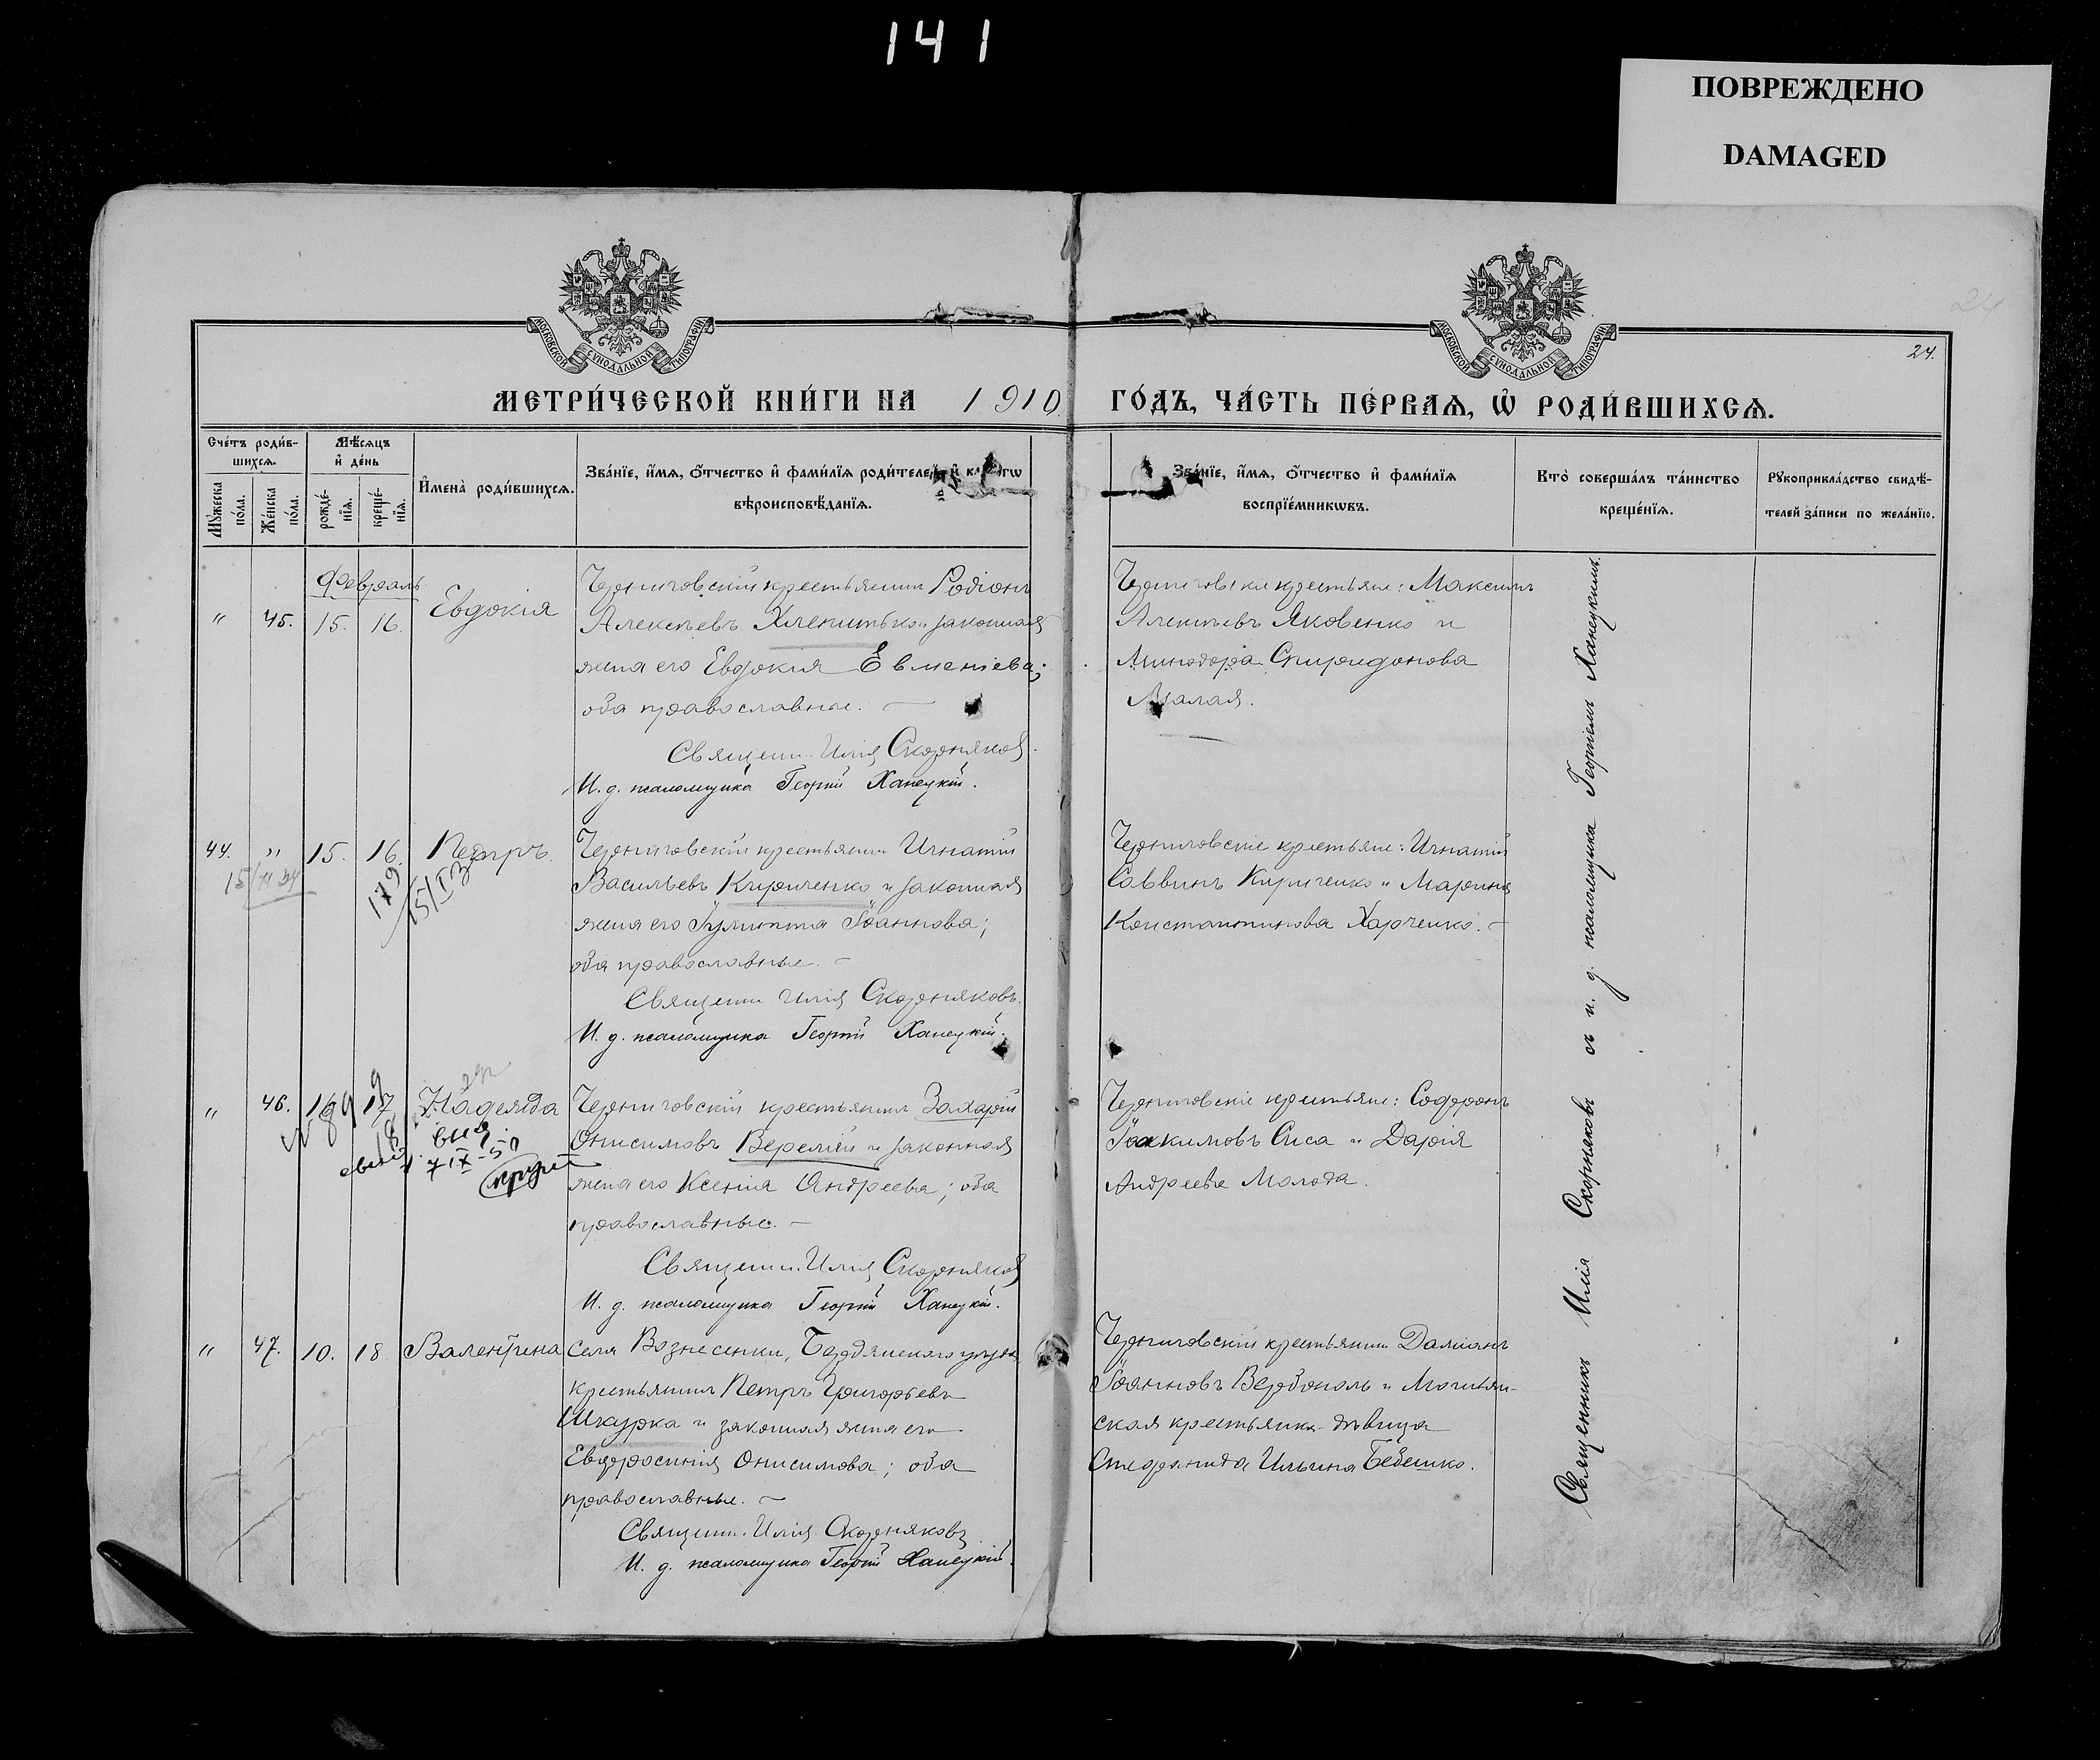 141
ПОВРЕЖДЕНО
DAMAGED
МОСКОВСКОЙ СѴНОДАЛЬНОЙ ТИПОГРАФІИ
МОСКОВСКОЙ СѴНОДАЛЬНОЙ ТИПОГРАФІИ
24
24.
МЕТРИ́ЧЕСКОЙ КНИ́ГИ НА 1910 ГО́ДЪ, ЧА́СТЬ ПЕ́РВАѦ, Ѽ РОДИ́ВШИХСѦ.
Сче́тъ роди́в-
шихсѧ.
Мꙋ́жеска по́ла.
Же́нска по́ла.
Мѣ́сѧцъ
и҆ де́нь
рожде́-
нїѧ.
креще́-
нїѧ.
И҆мена̀ роди́вшихсѧ.
Зва́нїе, и҆́мѧ, ѻ҆́тчество и҆ фами́лїѧ роди́телей, и҆
вѣроисповѣ́данїѧ.
Зва́нїе, и҆́мѧ, ѻ҆́тчество и҆ фами́лїѧ
воспрїе́мникѡвъ.
Кто̀ соверша́лъ та́инство
креще́нїѧ.
Рꙋкоприкла́дство свидѣ́-
телей за́писи по жела́нїю.
Февраль
" 45. 15. 16. Евдокія
Черниговскій крестьянинъ Родіонъ
Алексѣевъ Хленитько и законная
жена его Евдокія Евменіева;
оба православные.
Священ. Илія Скорняков.
И. д. псаломщика Георгій Ханецкій.
Черниговскіе крестьяне: Максимъ
Алексѣевъ Яковенко и
Минодора Спиридонова
Малая.
44. " 15. 16. Петръ.
Черниговскій крестьянинъ Игнатій
Васильевъ Кириченко и законная
жена его Іулиттта Іоаннова;
оба православные.
Священ. Илія Скорняковъ.
И. д. псаломщика Георгій Ханецкій.
Черниговскіе крестьяне: Игнатій
Саввинъ Кириченко и Марина
Константинова Харченко.
179
" 46. 16 17 Надежда
Черниговскій крестьянинъ Захарій
Онисимовъ Веремій и законная
жена его Ксенія Андреева; оба
православные.
Священ. Илія Скорняков
И. д. псаломщика Георгій Ханецкій.
Черниговскіе крестьяне: Софронъ
Іоакимовъ Сиса и Дарія
Андреева Молода.
7 IX-50
" 47. 10. 18 Валентина
Села Вознесенки, Бердянскаго уѣзда
крестьянинъ Петръ Григорьевъ
Шкурка и законная жена его
Евфросинія Онисимова; оба
православные.
Священ. Илія Скорняковъ
И. д. псаломщика Георгій Ханецкій.
Черниговскій крестьянинъ Даміанъ
Іоанновъ Вербополь и Могилян-
ская крестьянка-дѣвица
Стефанида Ильина Бебешко.
Священникъ Илія Скорняковъ съ и. д. псаломщика Георгіемъ Ханецкимъ.